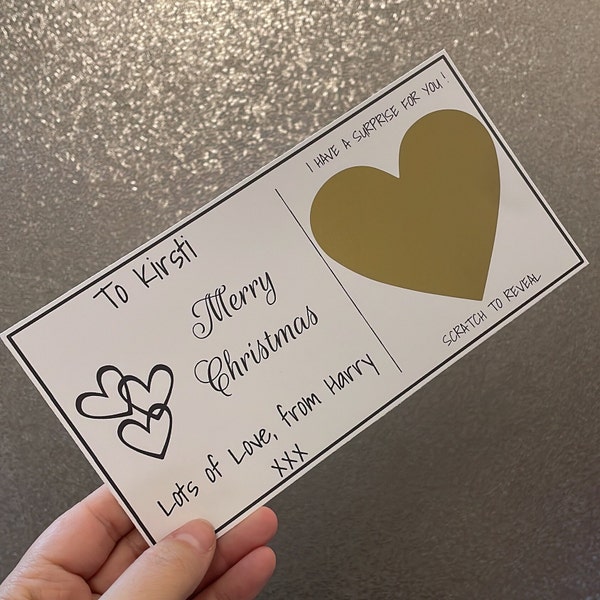 To Kirsti
Merry
Christmas
Lots of Love, from Harry
xxx
I HAVE A SURPRISE FOR YOU!
SCRATCH TO REVEAL